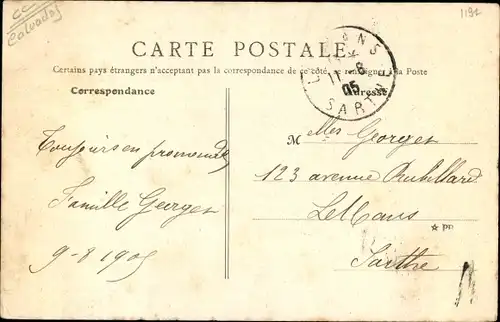 CC
Calvados
1191
CARTE POSTALE
Certains pays étrangers n'acceptant pas la correspondance de ce côté, se renseigner à la Poste
Correspondance
Adresse
11 - 8
05
SARTHE
Toujours en promenade
Famille Georges
9-8 1905
M elles Georges
123 avenue Rubillard
Le Mans
Sarthe